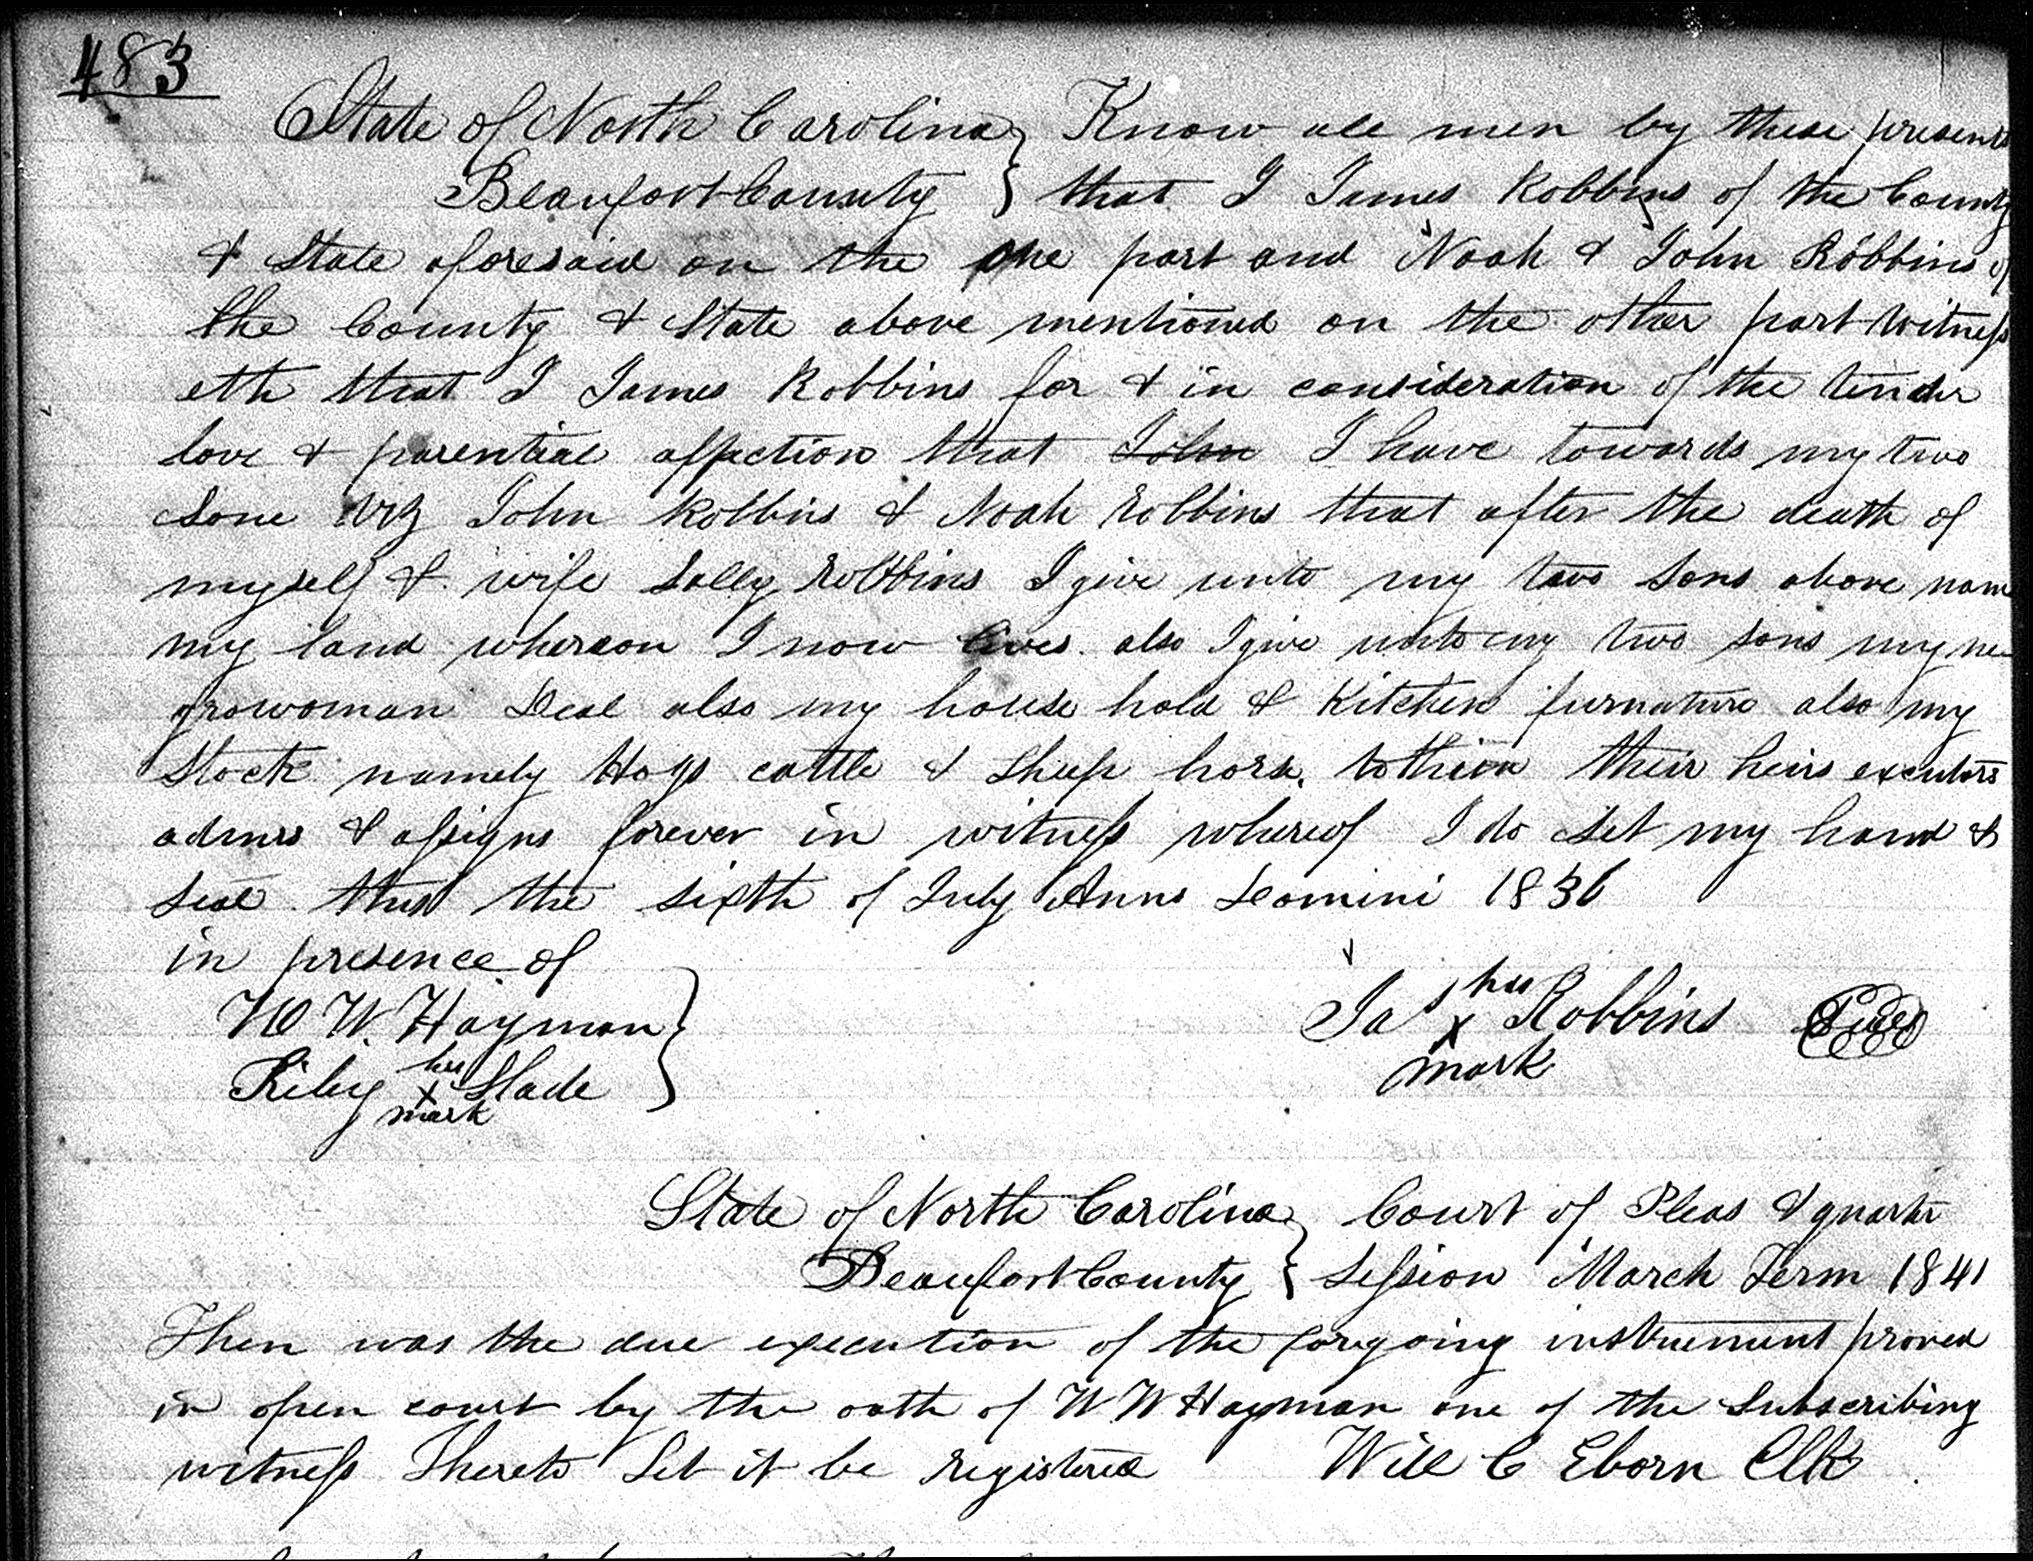 483
State of North Carolina } Know all men by these presents
Beaufort County } that I James Robbins of the County
& State aforesaid on the one part and Noah & John Robbins of
the County & State above mentioned on the other part Witness
eth that I James Robbins for & in consideration of the tender
love & parential affection that John I have towards my two
Sone viz John Robbins & Noah Robbins that after the death of
myself & wife Sally Robbins I give unto my two Sons above nam
my land whereon I now lives also I give unto my two sons my ne
growoman also my house hold & Kitchen furnature also my
Stock namely Hogs cattle & Sheep horse, to their heirs executors
admrs & assigns forever in witness whereof I do set my hand &
seal this the sixth of July Anno Domini 1836
in presence of
W W. Hayman }
Riley his X mark Slade
Jas his X mark Robbins Seal
State of North Carolina } Court of Pleas & quarter
Beaufort County } Session March Term 1841
Then was the due execution of the forgoing instrument proved
in open court by the oath of W W Hayman one of the Subscribing
witness Thereto Let it be registered Will C Eborn Clk